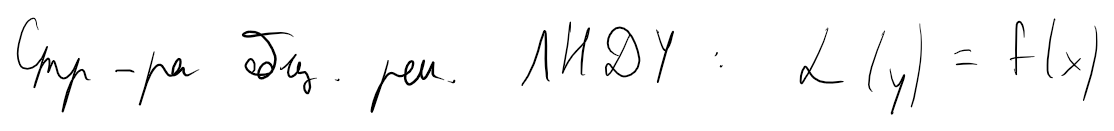 Стр-ра общ. реш. ЛНДУ: L(y) = f(x)